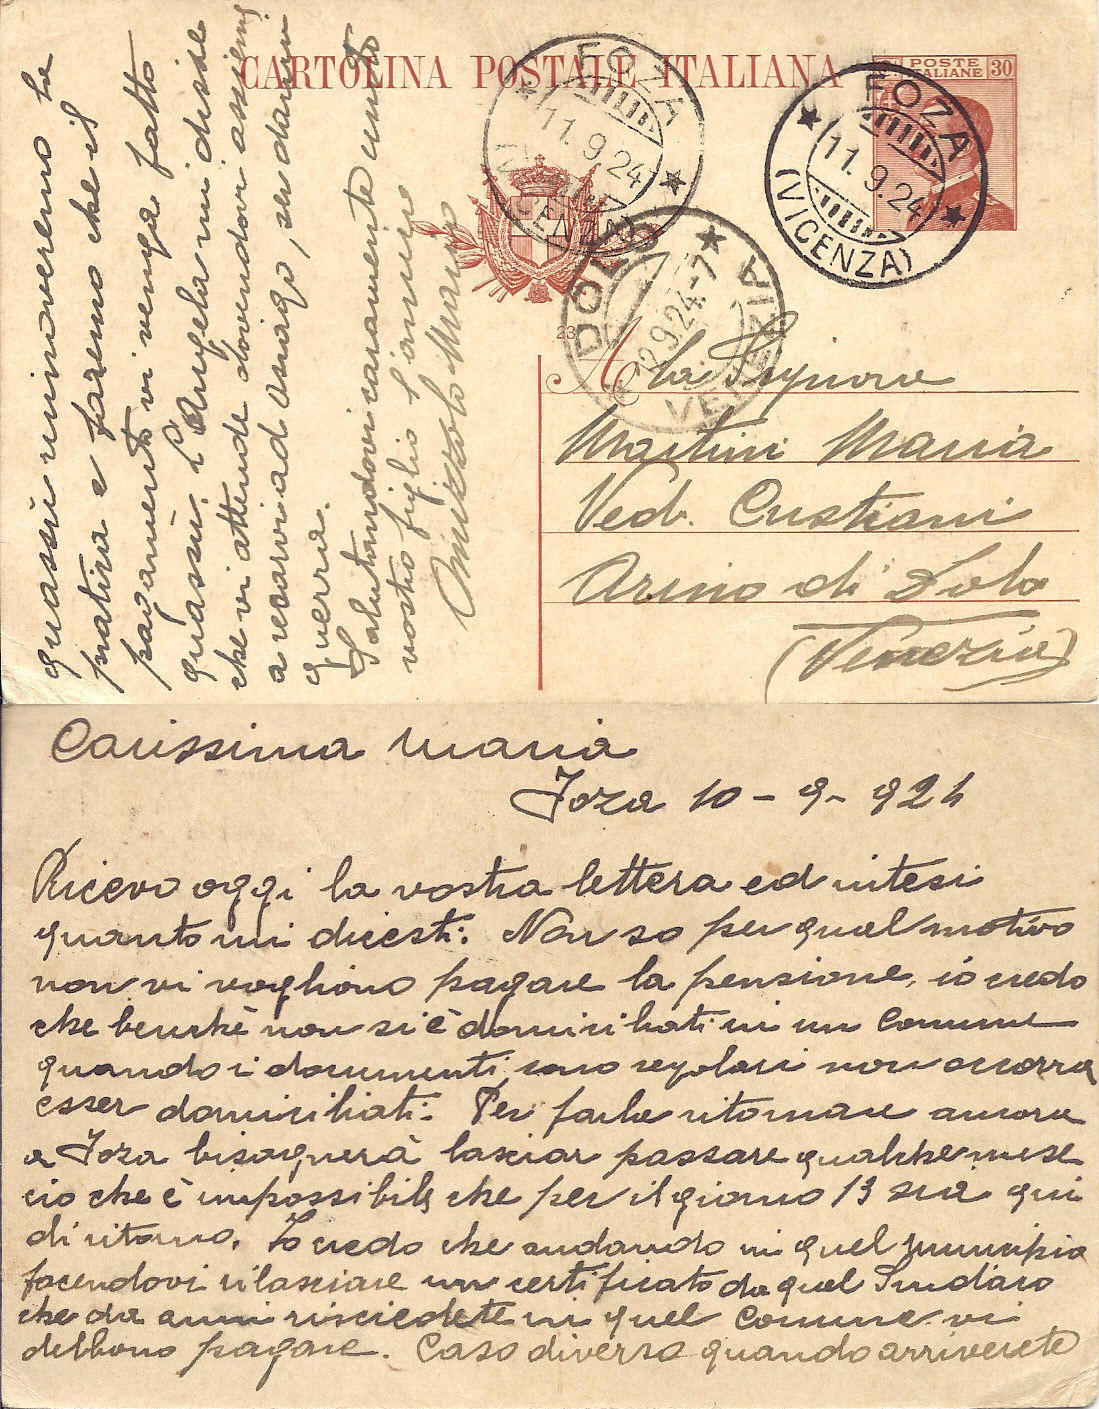 CARTOLINA POSTALE ITALIANA
POSTE
ITALIANE 30
FOZA
11.9.24
(VICENZA)
FOZA
11.9.24
(VICENZA)
DOLO
12.9.24.-7
VENEZIA
23
Alla Signora
Martini Maria
Ved. Cristiani
Arino di Dolo
(Venezia)
quassù rinnoveremo la
pratica e faremo che il
pagamento vi venga fatto
quassù. L'Angela mi disse
che vi attende dovendovi assieme
a recarvi ad Asiago, per danni
guerra.
Salutandovi caramente unito
vostro figlio
Mario
Carissima Maria
Foza 10-9-924
Ricevo oggi la vostra lettera ed intesi
quanto mi dicesti. Non so per qual motivo
non vi vogliono pagare la pensione, io credo
che benchè non si è domiciliati in un Comune
quando i documenti sono regolari non occorra
esser domiciliati. Per farle ritornare ancora
a Foza bisognerà lasciar passare qualche mese
ciò che è impossibile che per il giorno 13 sia qui
di ritorno. Io credo che andando in quel municipio
facendovi rilasciare un certificato da quel Sindaco
che da anni risciedete in quel Comune vi
debbono pagare. Caso diverso quando arriverete